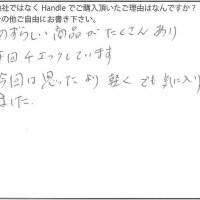 社ではなく Handle でご購入頂いたご理由はなんですか？
の他ご自由にお書き下さい。
めずらしい商品がたくさんあり
毎回チェックしています
今回は思ったより軽くでも気に入り
ました